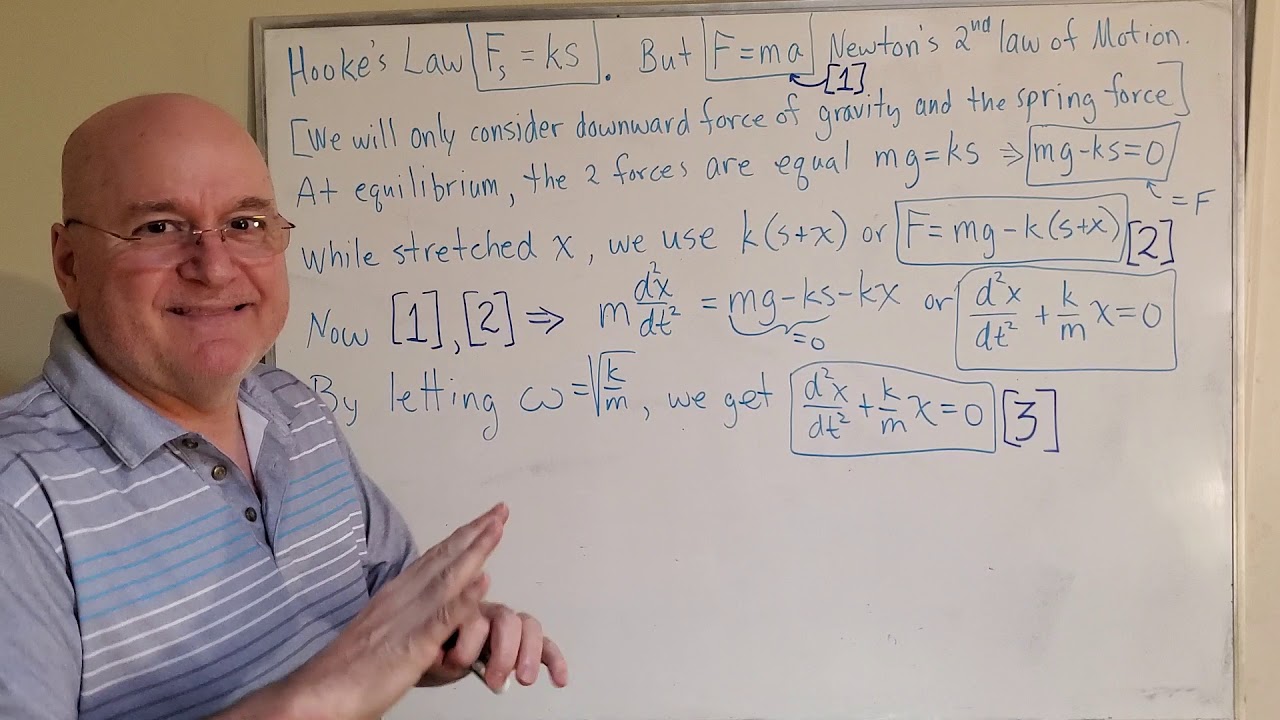 Hooke's Law F_s = ks. But F=ma Newton's 2nd law of Motion.
[1]
[We will only consider downward force of gravity and the spring force]
At equilibrium, the 2 forces are equal mg=ks ⇒ mg-ks=0
=F
While stretched x, we use k(s+x) or F=mg-k(s+x) [2]
Now [1],[2] ⇒ m d²x/dt² = mg-ks-kx or d²x/dt² + k/m x=0
=0
By letting ω=√(k/m), we get d²x/dt² + k/m x=0 [3]